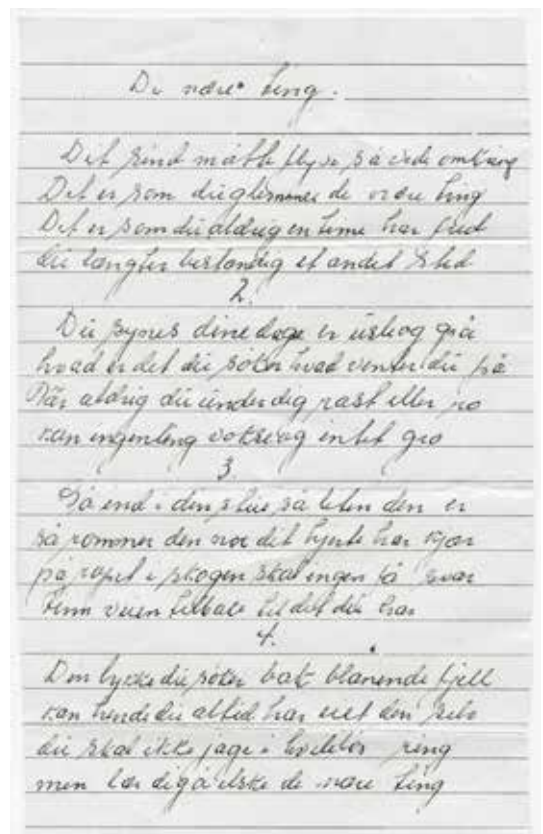 De nære ting.
Dit sind måtte flyve så vide omkring
Det er som du glemmer de nære ting
Det er som du aldrig en time har fred
du længter bestandig et andet sted
2.
Du synes dine dage er usle og grå
hvad er det du søker hvad venter du på
Når aldrig du under dig rast eller ro
kan ingenting vokse og intet gro
3.
Gå ind i din stue så liten den er
så rommer den noe dit hjerte har kjær
på ropet i skogen skal ingen få svar
finn veien tilbake til det du har
4.
Den lykke du søker bak blånende fjell
kan hende du altid har eiet den selv
du skal ikke jage i hvileløs ring
men lær dig å elske de nære ting